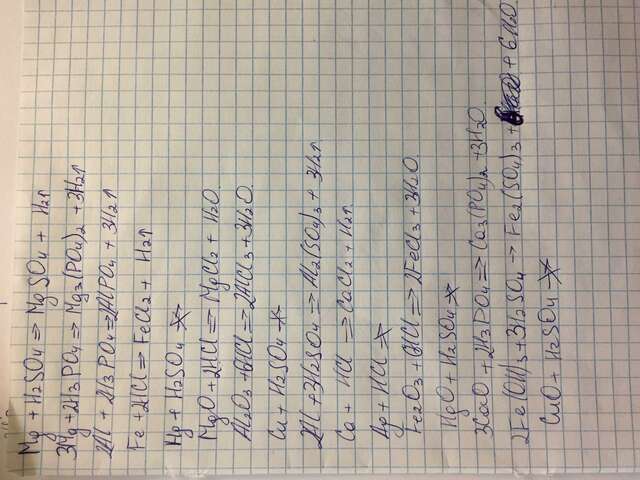 Mg + H2SO4 => MgSO4 + H2↑
3Mg + 2H3PO4 => Mg3(PO4)2 + 3H2↑
2Al + 2H3PO4 => 2AlPO4 + 3H2↑
Fe + 2HCl => FeCl2 + H2↑
Hg + H2SO4 ≠>
MgO + 2HCl => MgCl2 + H2O
Al2O3 + 6HCl => 2AlCl3 + 3H2O
Cu + H2SO4 ≠>
2Al + 3H2SO4 => Al2(SO4)3 + 3H2↑
Ca + HCl => CaCl2 + H2↑
Ag + HCl ≠>
Fe2O3 + 6HCl => 2FeCl3 + 3H2O
HgO + H2SO4 ≠>
3CaO + 2H3PO4 => Ca3(PO4)2 + 3H2O
2Fe(OH)3 + 3H2SO4 -> Fe2(SO4)3 + 6H2O
CuO + H2SO4 ≠>